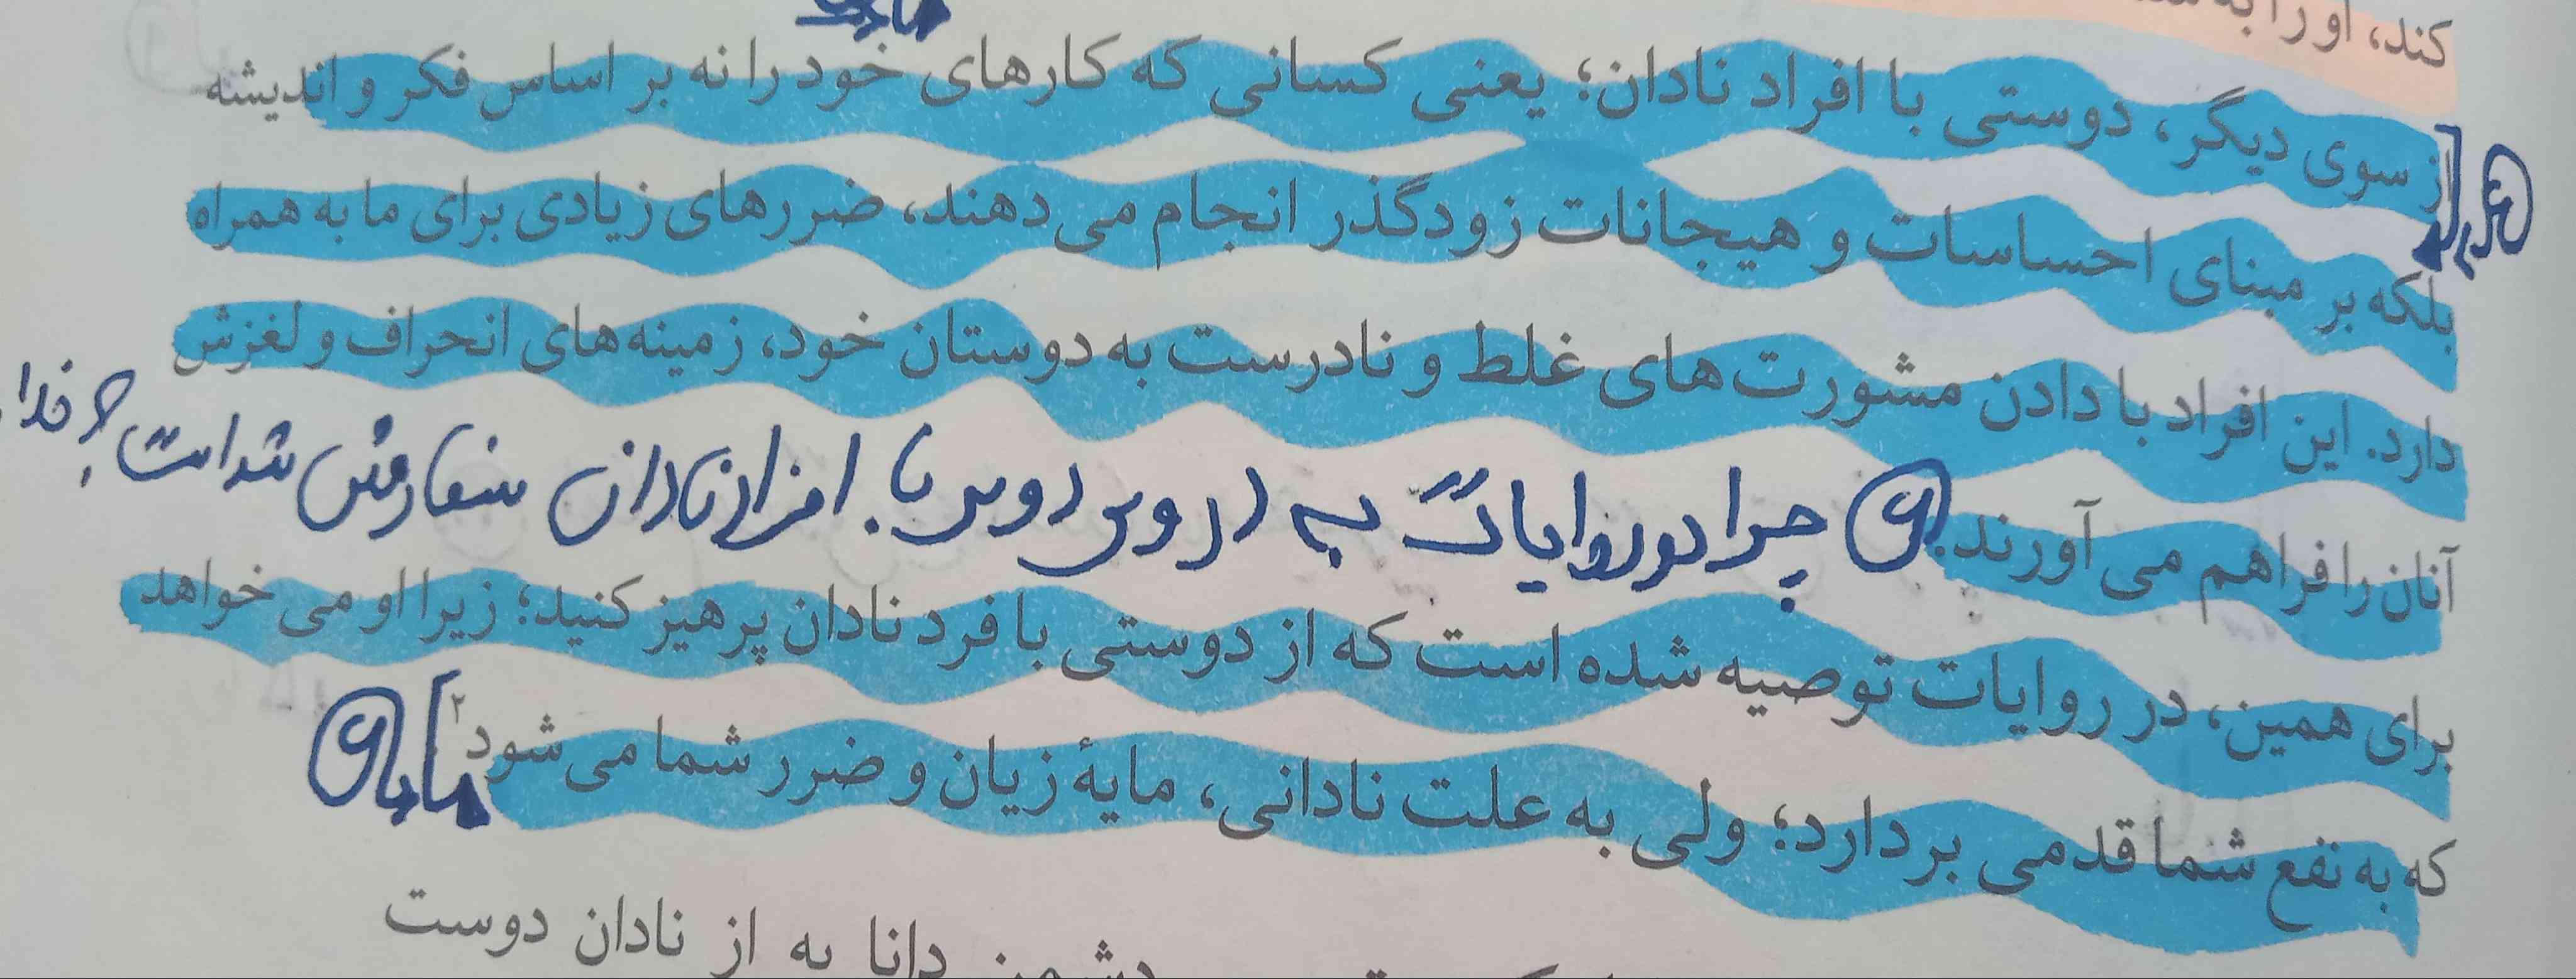 کند، او را به
از سوی دیگر، دوستی با افراد نادان؛ یعنی کسانی که کارهای خود را نه بر اساس فکر و اندیشه
بلکه بر مبنای احساسات و هیجانات زودگذر انجام می‌دهند، ضررهای زیادی برای ما به همراه
دارد. این افراد با دادن مشورت‌های غلط و نادرست به دوستان خود، زمینه‌های انحراف و لغزش
آنان را فراهم می‌آورند.
چرا در روایات به افراد نادان سفارش شده است؟
برای همین، در روایات توصیه شده است که از دوستی با فرد نادان پرهیز کنید؛ زیرا او می‌خواهد
که به نفع شما قدمی بردارد؛ ولی به علت نادانی، مایهٔ زیان و ضرر شما می‌شود ۲
پایان
دشمن دانا به از نادان دوست